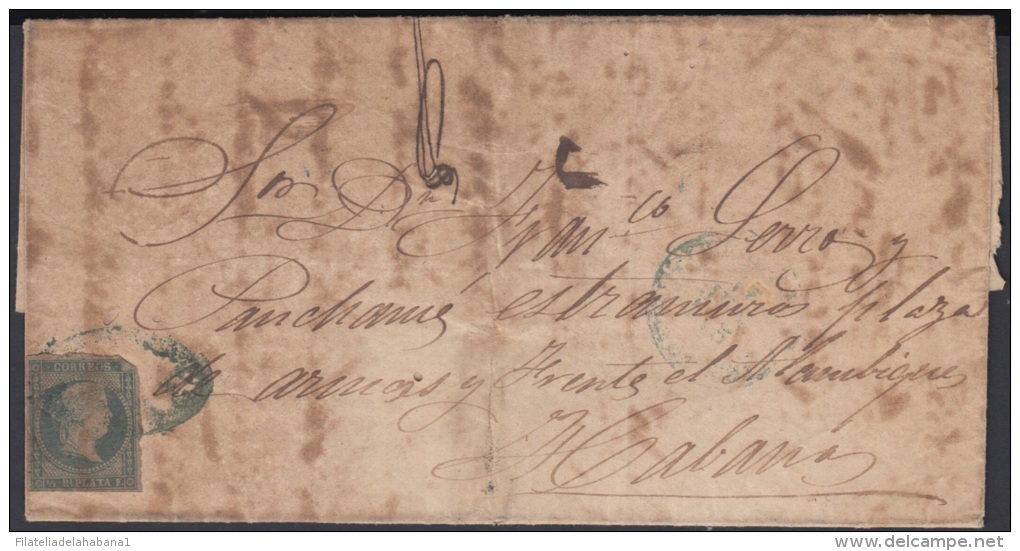 Sor Dn Franco Serra y
Panchamé estramuros plaza
de armas y Frente el Alambique
Habana
CORREOS
½ Rl PLATA F.
Filateliadelahabana1
delcampe.net